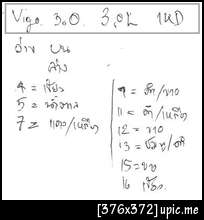 Vigo 3.0. 3.0L 1KD
อ่าง บน
ล่าง
4 = เขียว
5 = น้ำตาล
7 = แดง/เหลือง
9 = ดำ/ขาว
11 = ดำ/เหลือง
12 = ขาว
13 =
15 =
16 เขียว
[376x372]upic.me